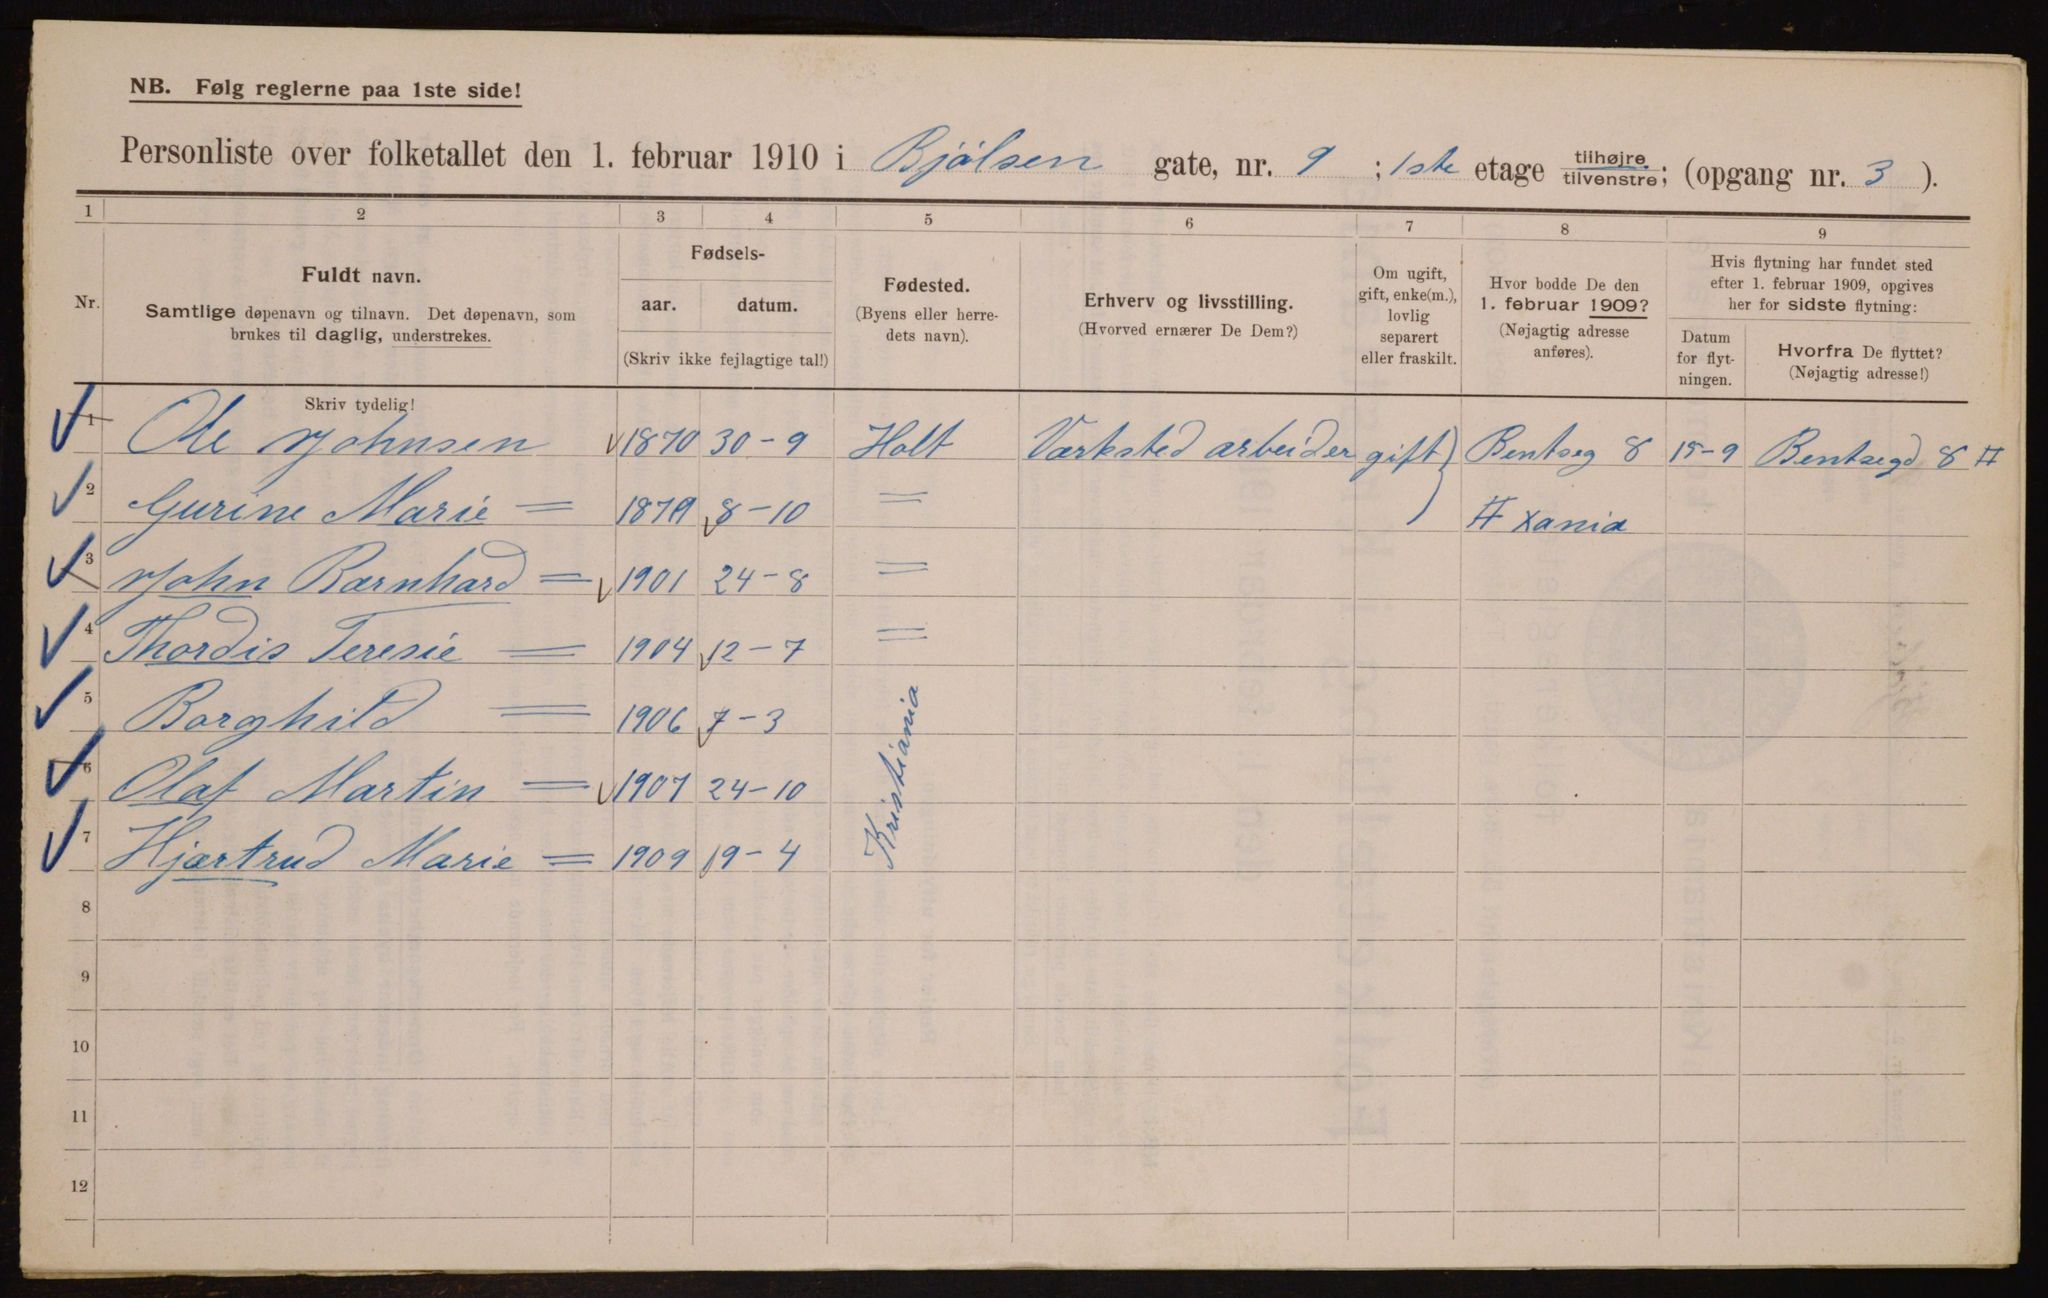 NB. Følg reglerne paa 1ste side!
Personliste over folketallet den 1. februar 1910 i Bjølsen gate, nr. 9 ; 1ste etage tilhøjre tilvenstre; (opgang nr. 3 ).
1 2 3 4 5 6 7 8 9
Nr.
Fuldt navn.
Samtlige døpenavn og tilnavn. Det døpenavn, som
brukes til daglig, understrekes.
Fødsels-
aar. datum.
(Skriv ikke fejlagtige tal!)
Fødested.
(Byens eller herre-
dets navn).
Erhverv og livsstilling.
(Hvorved ernærer De Dem?)
Om ugift,
gift, enke(m.),
lovlig
separert
eller fraskilt.
Hvor bodde De den
1. februar 1909?
(Nøjagtig adresse
anføres).
Hvis flytning har fundet sted
efter 1. februar 1909, opgives
her for sidste flytning:
Datum
for flyt-
ningen.
Hvorfra De flyttet?
(Nøjagtig adresse!)
Skriv tydelig!
1 Ole Johnsen 1870 30-9 Holt Værksted arbeider gift Bentseg 8 15-9 Bentsegd 8 #
2 Gurine Marie = 1879 8-10 = # Xania
3 John Bærnhard = 1901 24-8 =
4 Thordis Teresie = 1904 12-7 =
5 Borghild = 1906 7-3
6 Olaf Martin = 1907 24-10
7 Hjærtrud Marie = 1909 19-4
Kristiania
8
9
10
11
12